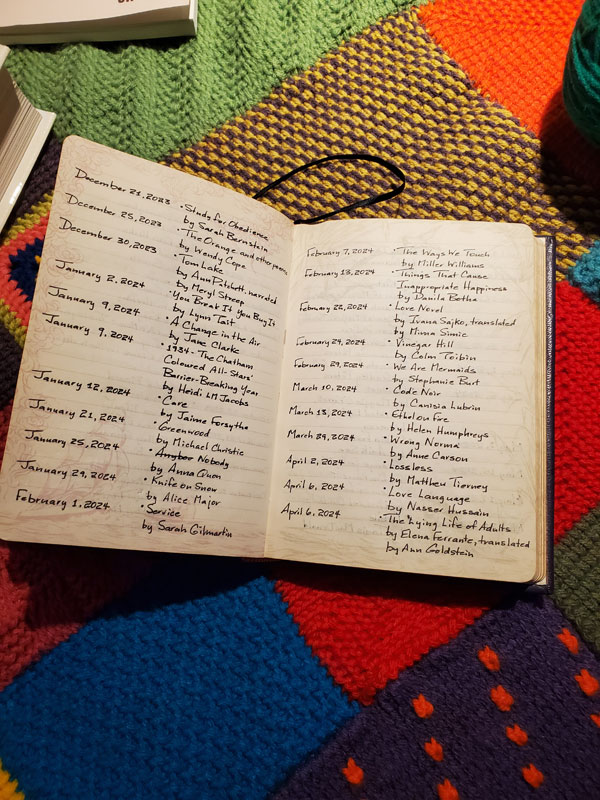 December 21, 2023 • Study for Obedience
by Sarah Bernstein
December 25, 2023 • The Orange and other poems
by Wendy Cope
December 30, 2023 • Tom Lake
by Ann Patchett, narrated
by Meryl Streep
January 2, 2024 • You Break It You Buy It
by Lynn Tait
January 9, 2024 • A Change in the Air
by Jane Clarke
January 9, 2024 • 1934 - The Chatham
Coloured All-Stars'
Barrier-Breaking Year
by Heidi LM Jacobs
January 12, 2024 • Care
by Jaime Forsythe
January 21, 2024 • Greenwood
by Michael Christie
January 25, 2024 • Nobody
by Anna Quon
January 29, 2024 • Knife on Snow
by Alice Major
February 1, 2024 • Service
by Sarah Gilmartin
February 7, 2024 • The Ways We Touch
by Miller Williams
February 13, 2024 • Things That Cause
Inappropriate Happiness
by Danila Botha
February 22, 2024 • Love Novel
by Ivana Sajko, translated
by Mima Simic
February 29, 2024 • Vinegar Hill
by Colm Toibin
February 29, 2024 • We Are Mermaids
by Stephanie Burt
March 10, 2024 • Code Noir
by Canisia Lubrin
March 13, 2024 • Ethel on Fire
by Helen Humphreys
March 29, 2024 • Wrong Norma
by Anne Carson
April 2, 2024 • Lossless
by Matthew Tierney
April 6, 2024 • Love Language
by Nasser Hussain
April 6, 2024 • The Lying Life of Adults
by Elena Ferrante, translated
by Ann Goldstein